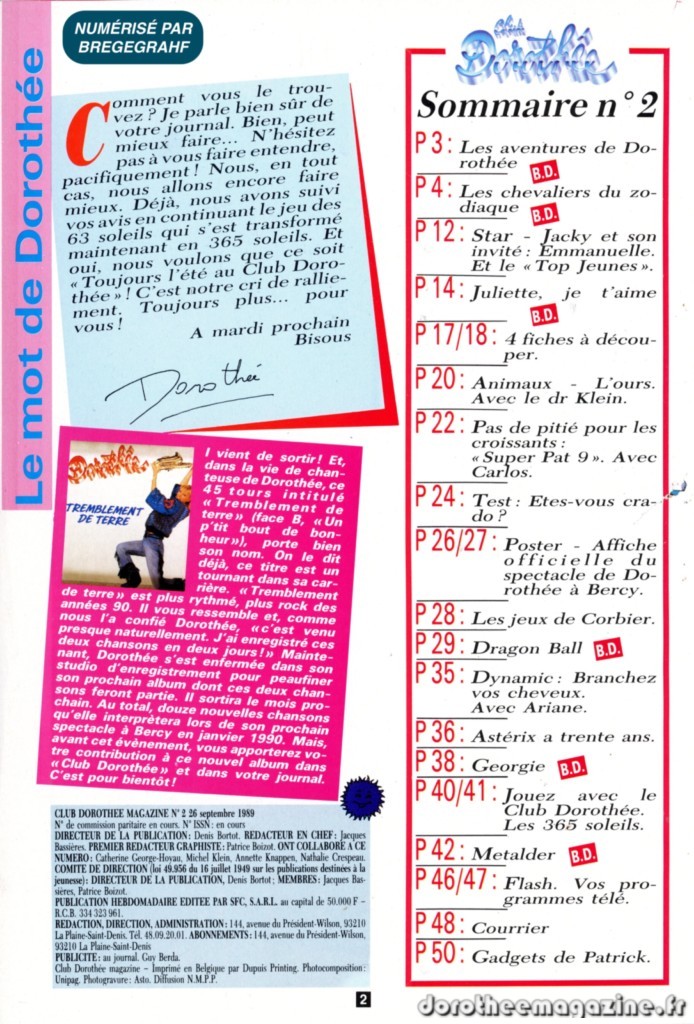 NUMÉRISÉ PAR
BREGEGRAHF
Le mot de Dorothée
Comment vous le trou-
vez ? Je parle bien sûr de
votre journal. Bien, peut
mieux faire... N'hésitez
pas à vous faire entendre,
pacifiquement ! Nous, en tout
cas, nous allons encore faire
mieux. Déjà, nous avons suivi
vos avis en continuant le jeu des
63 soleils qui s'est transformé
maintenant en 365 soleils. Et
oui, nous voulons que ce soit
« Toujours l'été au Club Doro-
thée » ! C'est notre cri de rallie-
ment. Toujours plus... pour
vous !
A mardi prochain
Bisous
Dorothée
Dorothée
TREMBLEMENT
DE TERRE
I vient de sortir ! Et,
dans la vie de chan-
teuse de Dorothée, ce
45 tours intitulé
« Tremblement de
terre » (face B, « Un
p'tit bout de bon-
heur »), porte bien
son nom. On le dit
déjà, ce titre est un
tournant dans sa car-
rière. « Tremblement
de terre » est plus rythmé, plus rock des
années 90. Il vous ressemble et, comme
nous l'a confié Dorothée, « c'est venu
presque naturellement. J'ai enregistré ces
deux chansons en deux jours ! » Mainte-
nant, Dorothée s'est enfermée dans son
studio d'enregistrement pour peaufiner
son prochain album dont ces deux chan-
sons feront partie. Il sortira le mois pro-
chain. Au total, douze nouvelles chansons
qu'elle interprètera lors de son prochain
spectacle à Bercy en janvier 1990. Mais,
avant cet évènement, vous apporterez vo-
tre contribution à ce nouvel album dans
« Club Dorothée » et dans votre journal.
C'est pour bientôt !
CLUB DOROTHEE MAGAZINE N° 2 26 septembre 1989
N° de commission paritaire en cours. N° ISSN : en cours
DIRECTEUR DE LA PUBLICATION : Denis Bortot. REDACTEUR EN CHEF : Jacques
Bassières. PREMIER REDACTEUR GRAPHISTE : Patrice Boizot. ONT COLLABORÉ A CE
NUMERO : Catherine George-Hoyau, Michel Klein, Annette Knappen, Nathalie Crespeau.
COMITE DE DIRECTION (loi 49.956 du 16 juillet 1949 sur les publications destinées à la
jeunesse) : DIRECTEUR DE LA PUBLICATION, Denis Bortot ; MEMBRES : Jacques Bas-
sières, Patrice Boizot.
PUBLICATION HEBDOMADAIRE EDITEE PAR SFC, S.A.R.L. au capital de 50.000 F –
R.C.B. 334 323 961.
REDACTION, DIRECTION, ADMINISTRATION : 144, avenue du Président-Wilson, 93210
La Plaine-Saint-Denis. Tél. 48.09.20.01. ABONNEMENTS : 144, avenue du Président-Wilson,
93210 La Plaine-Saint-Denis
PUBLICITE : au journal. Guy Berda.
Club Dorothée magazine – Imprimé en Belgique par Dupuis Printing. Photocomposition :
Unipag. Photogravure : Asto. Diffusion N.M.P.P.
2
Club
Dorothée
Sommaire n° 2
P 3 : Les aventures de Do-
rothée B.D.
P 4 : Les chevaliers du zo-
diaque B.D.
P 12 : Star - Jacky et son
invité : Emmanuelle.
Et le « Top Jeunes ».
P 14 : Juliette, je t'aime
B.D.
P 17/18 : 4 fiches à décou-
per.
P 20 : Animaux - L'ours.
Avec le dr Klein.
P 22 : Pas de pitié pour les
croissants :
« Super Pat 9 ». Avec
Carlos.
P 24 : Test : Etes-vous cra-
do ?
P 26/27 : Poster - Affiche
officielle du
spectacle de Do-
rothée à Bercy.
P 28 : Les jeux de Corbier.
P 29 : Dragon Ball B.D.
P 35 : Dynamic : Branchez
vos cheveux.
Avec Ariane.
P 36 : Astérix a trente ans.
P 38 : Georgie B.D.
P 40/41 : Jouez avec le
Club Dorothée.
Les 365 soleils.
P 42 : Metalder B.D.
P 46/47 : Flash. Vos pro-
grammes télé.
P 48 : Courrier
P 50 : Gadgets de Patrick.
dorotheemagazine.fr